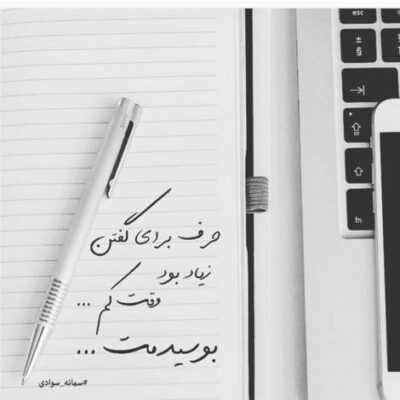 حرف برای گفتن
زیاد بود
وقت کم ...
بوسیدمت ...
#سمانه_سوادی
esc
fn